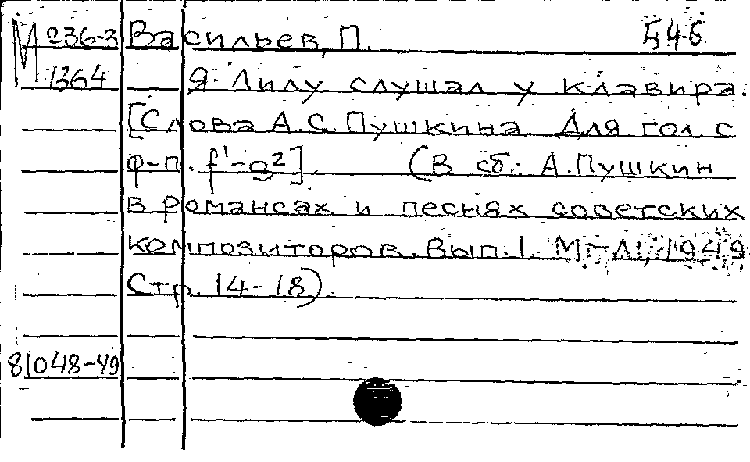 М 236-3 Васильев, П. 546
1364 Я Лилу слушал у клавира.
[Слова А.С. Пушкина Для гол. с
ф-п. f¹-g²]. (В сб.: А.Пушкин
в романсах и песнях советских
композиторов. Вып.1. М.-Л., 1949
Стр. 14-18).
81048-49